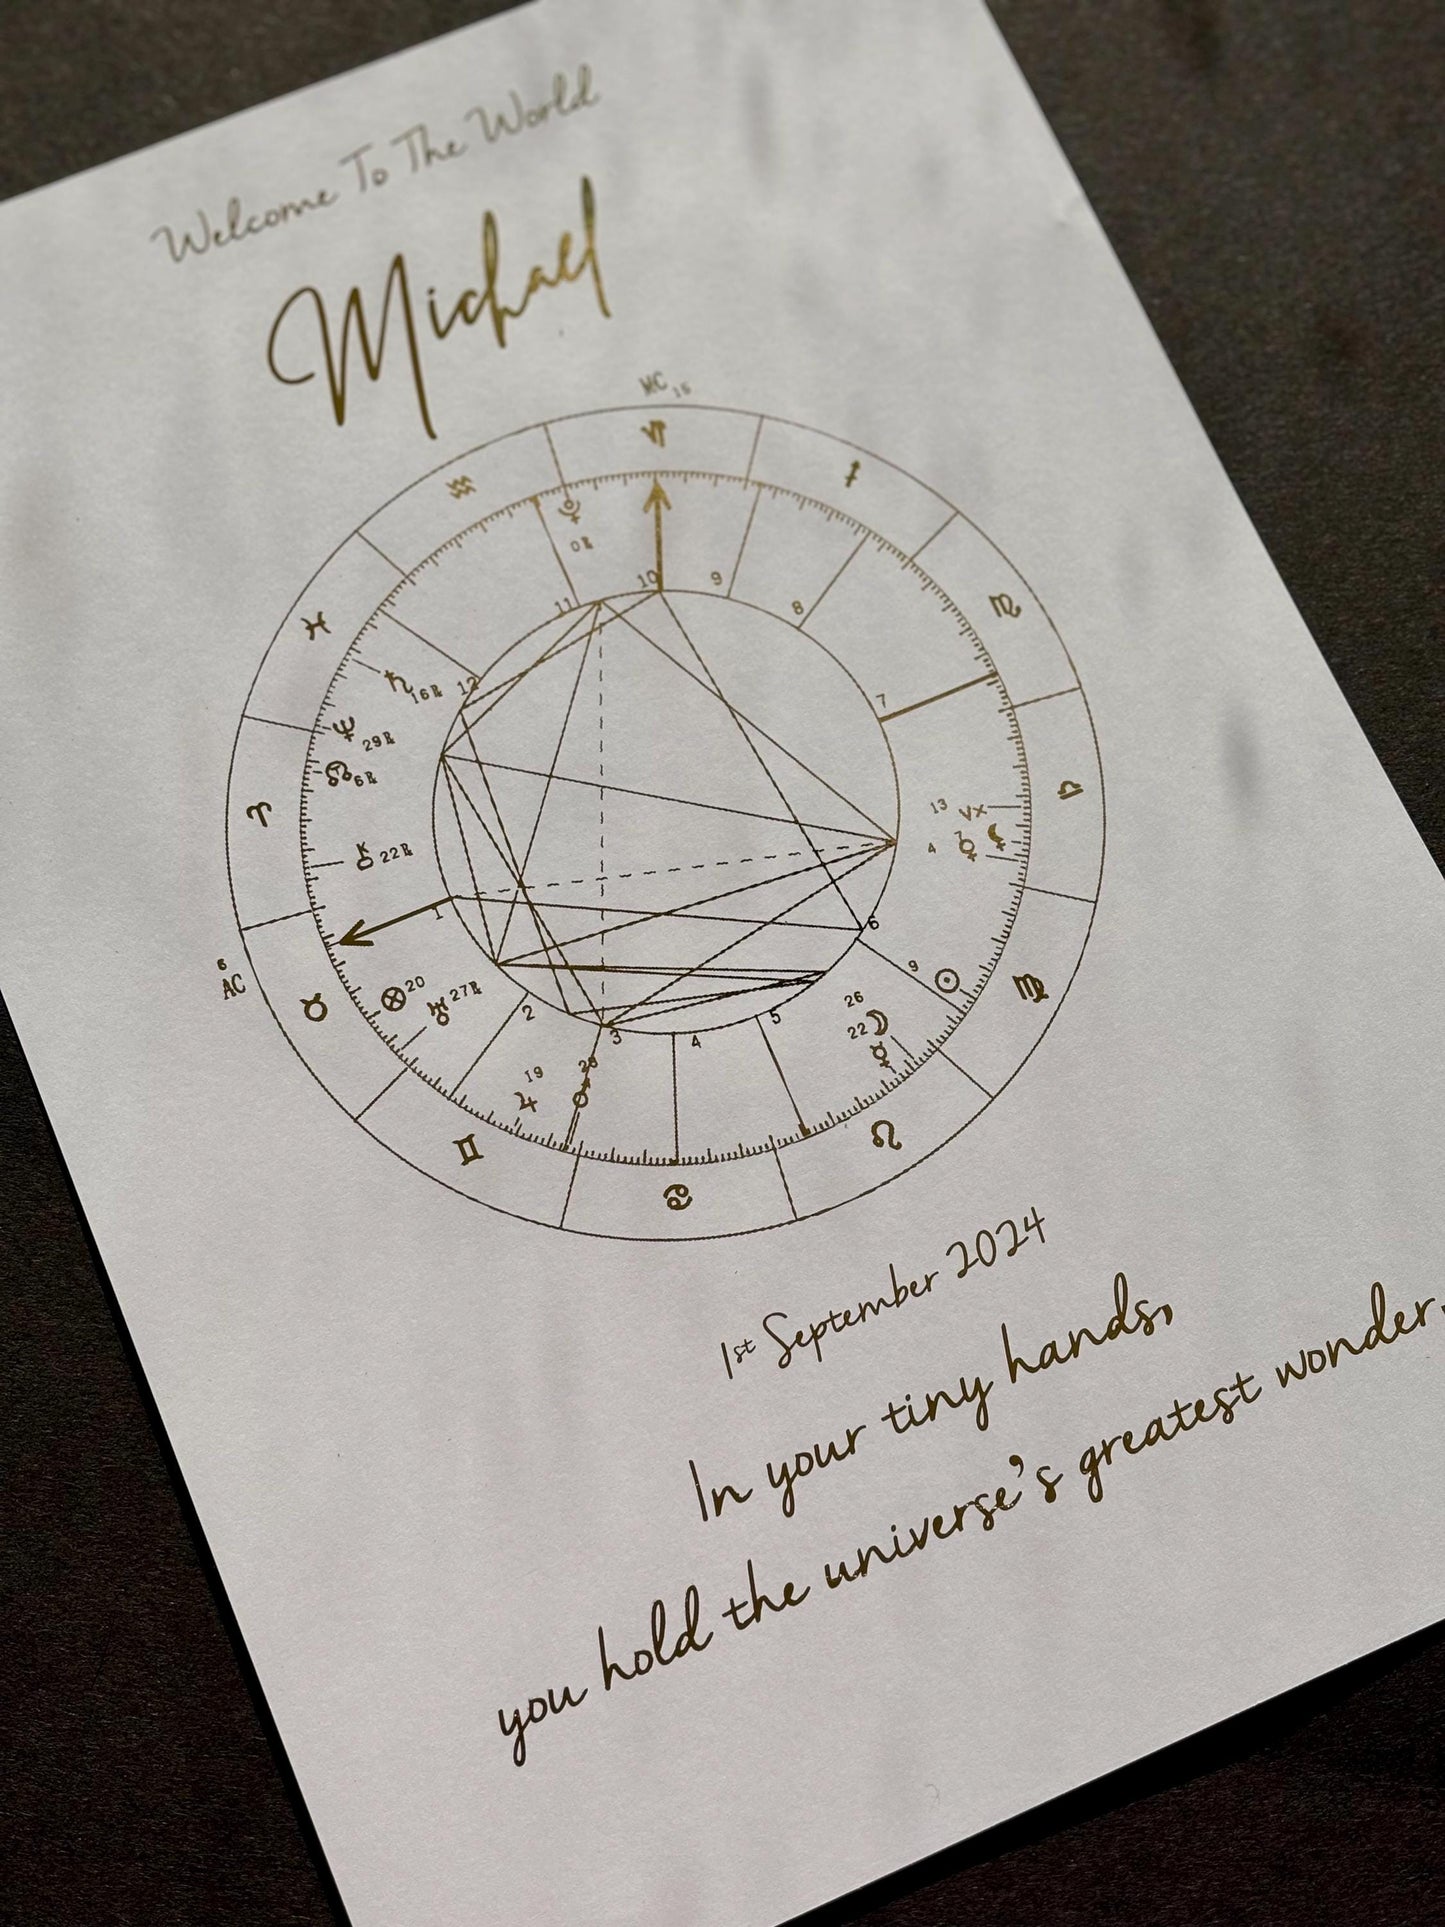 Welcome To The World
Michael
MC 15
0℞
11
10
9
8
12
7
16℞
29℞
6℞
22℞
13 Vx
7
4
1
6
6
AC
9
20
27℞
26
22
2
3
4
5
19
28
1st September 2024
In your tiny hands,
you hold the universe's greatest wonder.